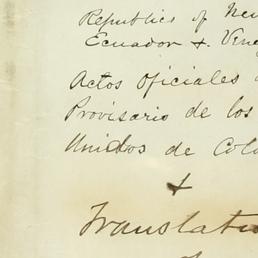 Republics of New
Ecuador + Vene
Actos Oficiales
Provisario de los
Unidos de Col
+
Translati